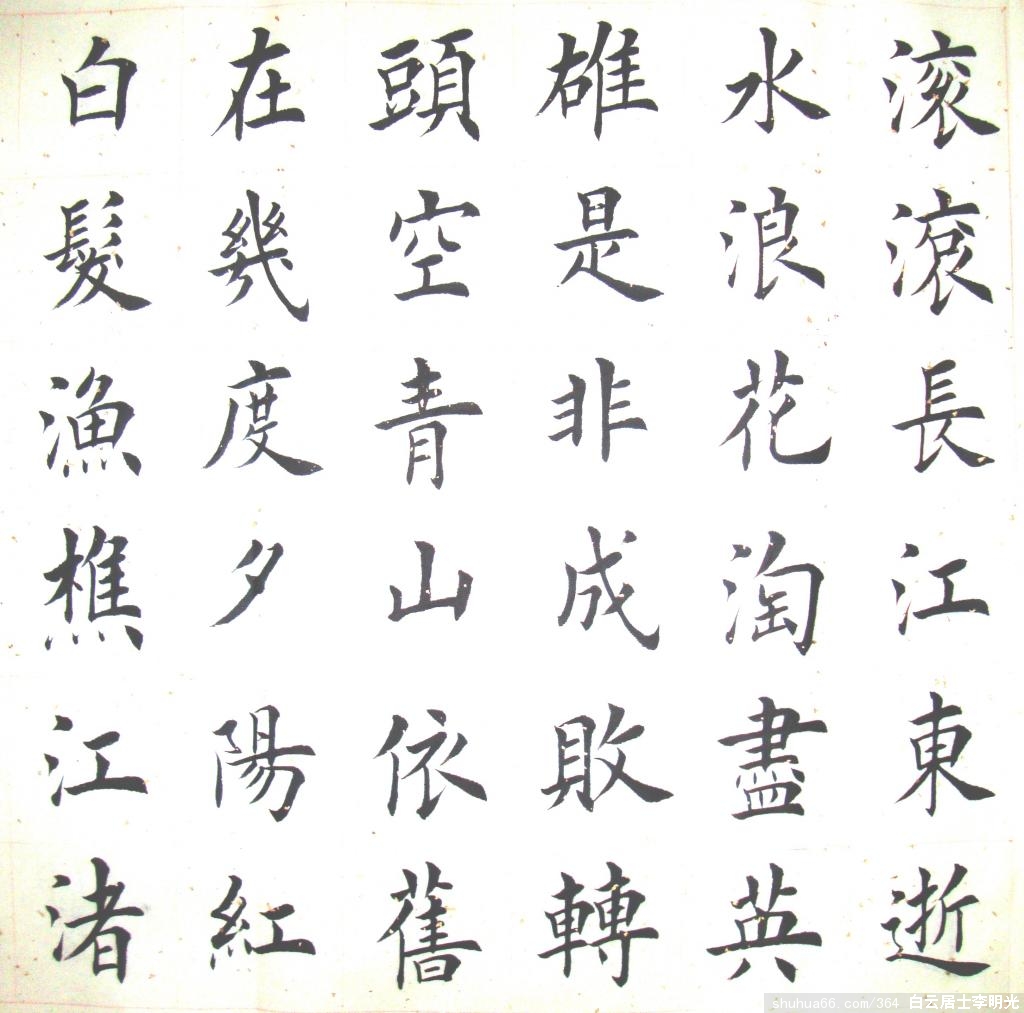 滾滾長江東逝
水浪花淘盡英
雄是非成敗轉
頭空青山依舊
在幾度夕陽紅
白髮漁樵江渚
shuhua66.com/364 白云居士李明光